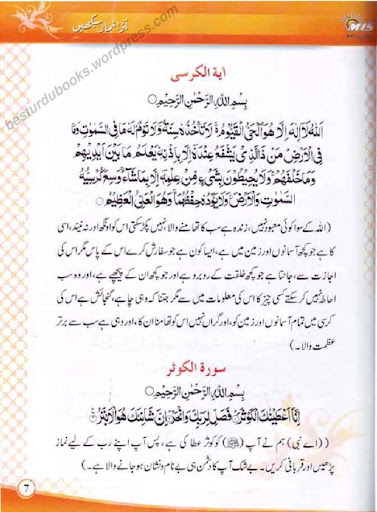 آؤ نماز سیکھیں
MIS
besturdubooks.wordpress.com
اية الكرسى
بِسْمِ اللّٰهِ الرَّحْمٰنِ الرَّحِيْمِ ○
اَللّٰهُ لَآ اِلٰهَ اِلَّا هُوَ اَلْحَيُّ الْقَيُّوْمُ ۚ لَا تَاْخُذُهٗ سِنَةٌ وَّلَا نَوْمٌ لَهٗ مَا فِى السَّمٰوٰتِ وَمَا
فِى الْاَرْضِ مَنْ ذَا الَّذِيْ يَشْفَعُ عِنْدَهٗٓ اِلَّا بِاِذْنِهٖ يَعْلَمُ مَا بَيْنَ اَيْدِيْهِمْ
وَمَا خَلْفَهُمْ وَلَا يُحِيْطُوْنَ بِشَيْءٍ مِّنْ عِلْمِهٖٓ اِلَّا بِمَا شَآءَ وَسِعَ كُرْسِيُّهُ
السَّمٰوٰتِ وَالْاَرْضَ وَلَا يَئُوْدُهٗ حِفْظُهُمَا وَهُوَ الْعَلِيُّ الْعَظِيْمُ ○
(اللہ کے سوا کوئی معبود نہیں، زندہ ہے سب کا تھامنے والا نہیں پکڑ سکتی اس کو اونگھ اور نہ نیند، اسی
کا ہے جو کچھ آسمانوں اور زمین میں ہے، ایسا کون ہے جو سفارش کرے اس کے پاس مگر اس کی
اجازت سے، جانتا ہے جو کچھ خلقت کے روبرو ہے اور جو کچھ ان کے پیچھے ہے، اور وہ سب
احاطہ نہیں کر سکتے کسی چیز کا اس کی معلومات میں سے مگر جتنا کہ وہی چاہے، گنجائش ہے اس کی
کرسی میں تمام آسمانوں اور زمین کو، اور گراں نہیں اس کو تھامنا ان کا، اور وہی ہے سب سے برتر
عظمت والا۔)
سورة الكوثر
بِسْمِ اللّٰهِ الرَّحْمٰنِ الرَّحِيْمِ ○
اِنَّآ اَعْطَيْنٰكَ الْكَوْثَرَ ○ فَصَلِّ لِرَبِّكَ وَانْحَرْ ○ اِنَّ شَانِئَكَ هُوَ الْاَبْتَرُ ○
((اے نبی) ہم نے آپ (ﷺ) کو کوثر عطا کی ہے، پس آپ اپنے رب کے لیے نماز
پڑھیں اور قربانی کریں۔ بے شک آپ کا دشمن ہی بے نام ونشان ہو جانے والا ہے۔)
7